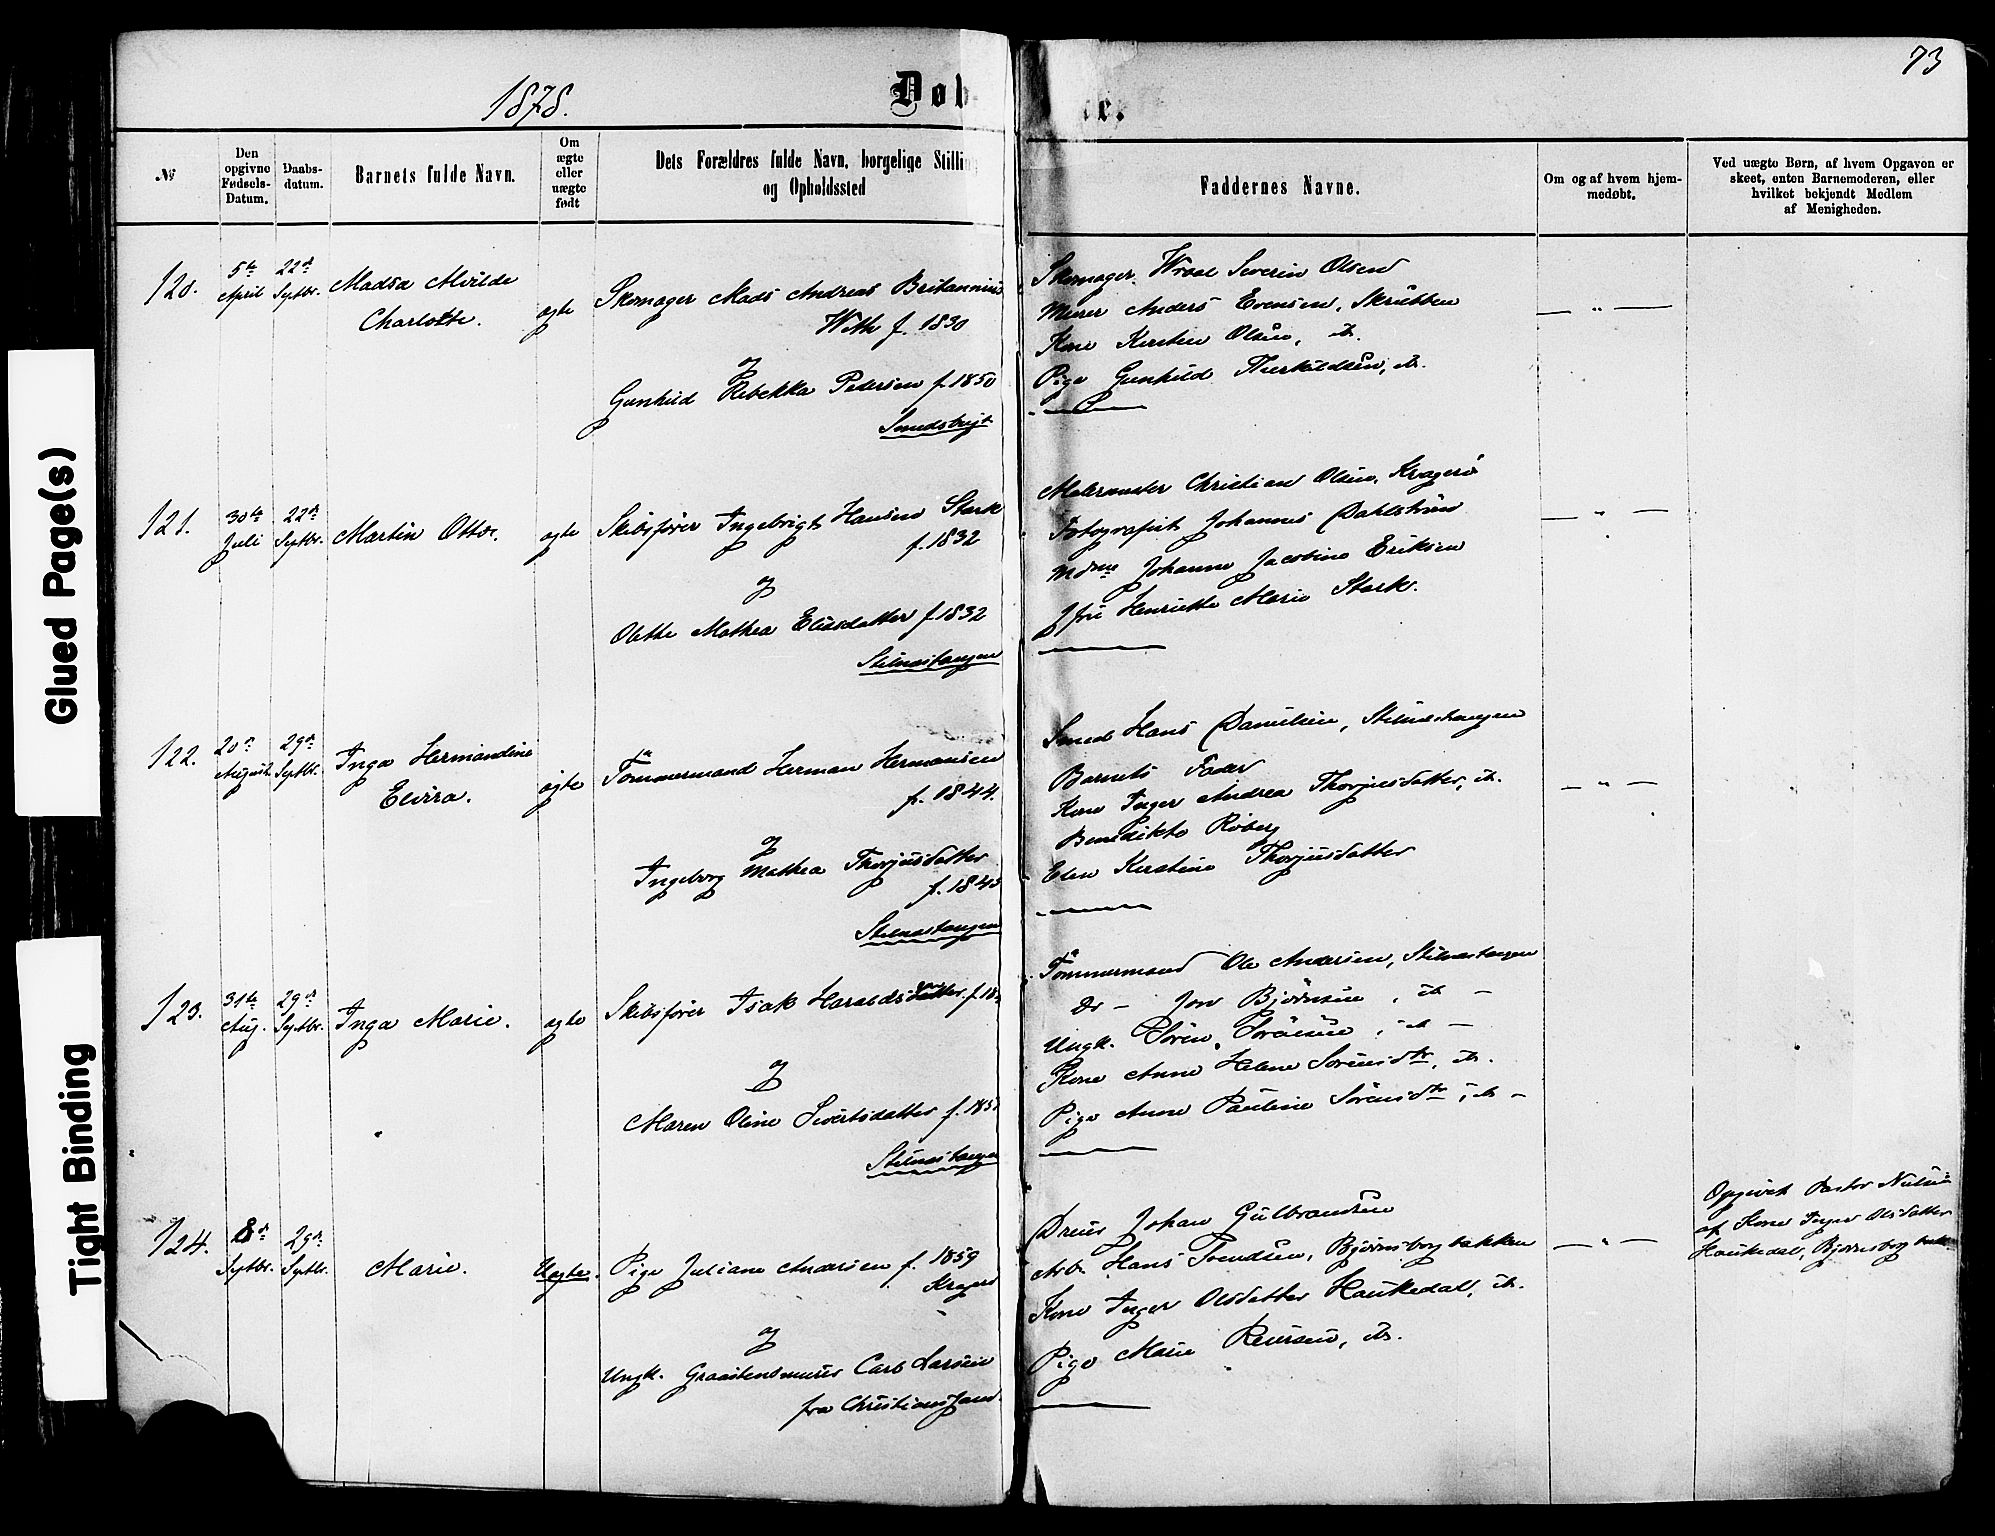 1878.
Døb
e.
73
№
Den opgivne Fødsels-Datum.
Daabs-datum.
Barnets fulde Navn.
Om ægte eller uægte født
Dets Forældres fulde Navn, borgelige Stilli
og Opholdssted
Faddernes Navne.
Om og af hvem hjem-
medøbt.
Ved uægte Børn, af hvem Opgaven er
skeet, enten Barnemoderen, eller
hvilket bekjendt Medlem
af Menigheden.
120.
5te April
22de Septbr.
Madsa Alvilde
Charlotte.
ægte
Skomager Mads Andreas Britannius
With f. 1830
og
Gunhild Rebekka Pedersen f. 1850
Skomager Severin Olsen
Murer Anders Evensen, Skrubben
Kone Kirsten Olsen, it.
Pige Gunhild Therkildsen, it.
— " —
121.
30te Juli
22de Septbr.
Martin Otto.
ægte
Skibsfører Ingebrigt Hansen Stark
f. 1832
og
Olette Mathea Eliasdatter f. 1832
Stilnæstangen
Christian Olsen, Kragerø
Fotografist Johannes Dahlstrøm
Mdme Johanne Jacobine Eriksen
Jfru Henriette Marie Stark.
— " —
122.
20de August
29de Septbr.
Inga Hermandine
Elvira.
ægte
Tömmermand Herman Hermansen
f. 1844.
og
Ingeborg Mathea Thorjusdatter
f. 184
Stilnæstangen
Smed Hans Danielsen, Stilnæstangen
Barnets Fader
Kone Inger Andrea Thorjusdatter, it.
Benedikte Roberg
Elen Kirstine Thorjusdatter
— " —
123.
31te Aug.
29de Septbr.
Inga Marie.
ægte
Skibsfører Isak Haralds f. 18
og
Maren Oline Sivertsdatter f. 185
Stilnæstangen
Tömmermand Ole Andersen, Stilnæstangen
Do – Jon Bjørnsen, it –
Ungk. Sören Sörensen, it –
Kone Anne Helene Sörensdtr, it.
Pige Anne Pauline Sörensdtr, it –
124.
8de Septbr.
29de Septbr.
Marie.
Uægte.
Pige Juliane Andersen f. 1859
Kragerø
og
Ungk. Graastensmurer Carl Larsen
fra Christianssand.
Johan Gulbrandsen
Arb. Hans Svendsen, Bjørnsborgbakken
Kone Inger Olsdatter Haukedal, it.
Pige Marie Reiersen, it.
— " —
Opgivet Pastor Nielsen
af Kone Inger Olsdatter
Haukedal, Bjørnsborgbakk.
Glued Page(s)
Tight Binding